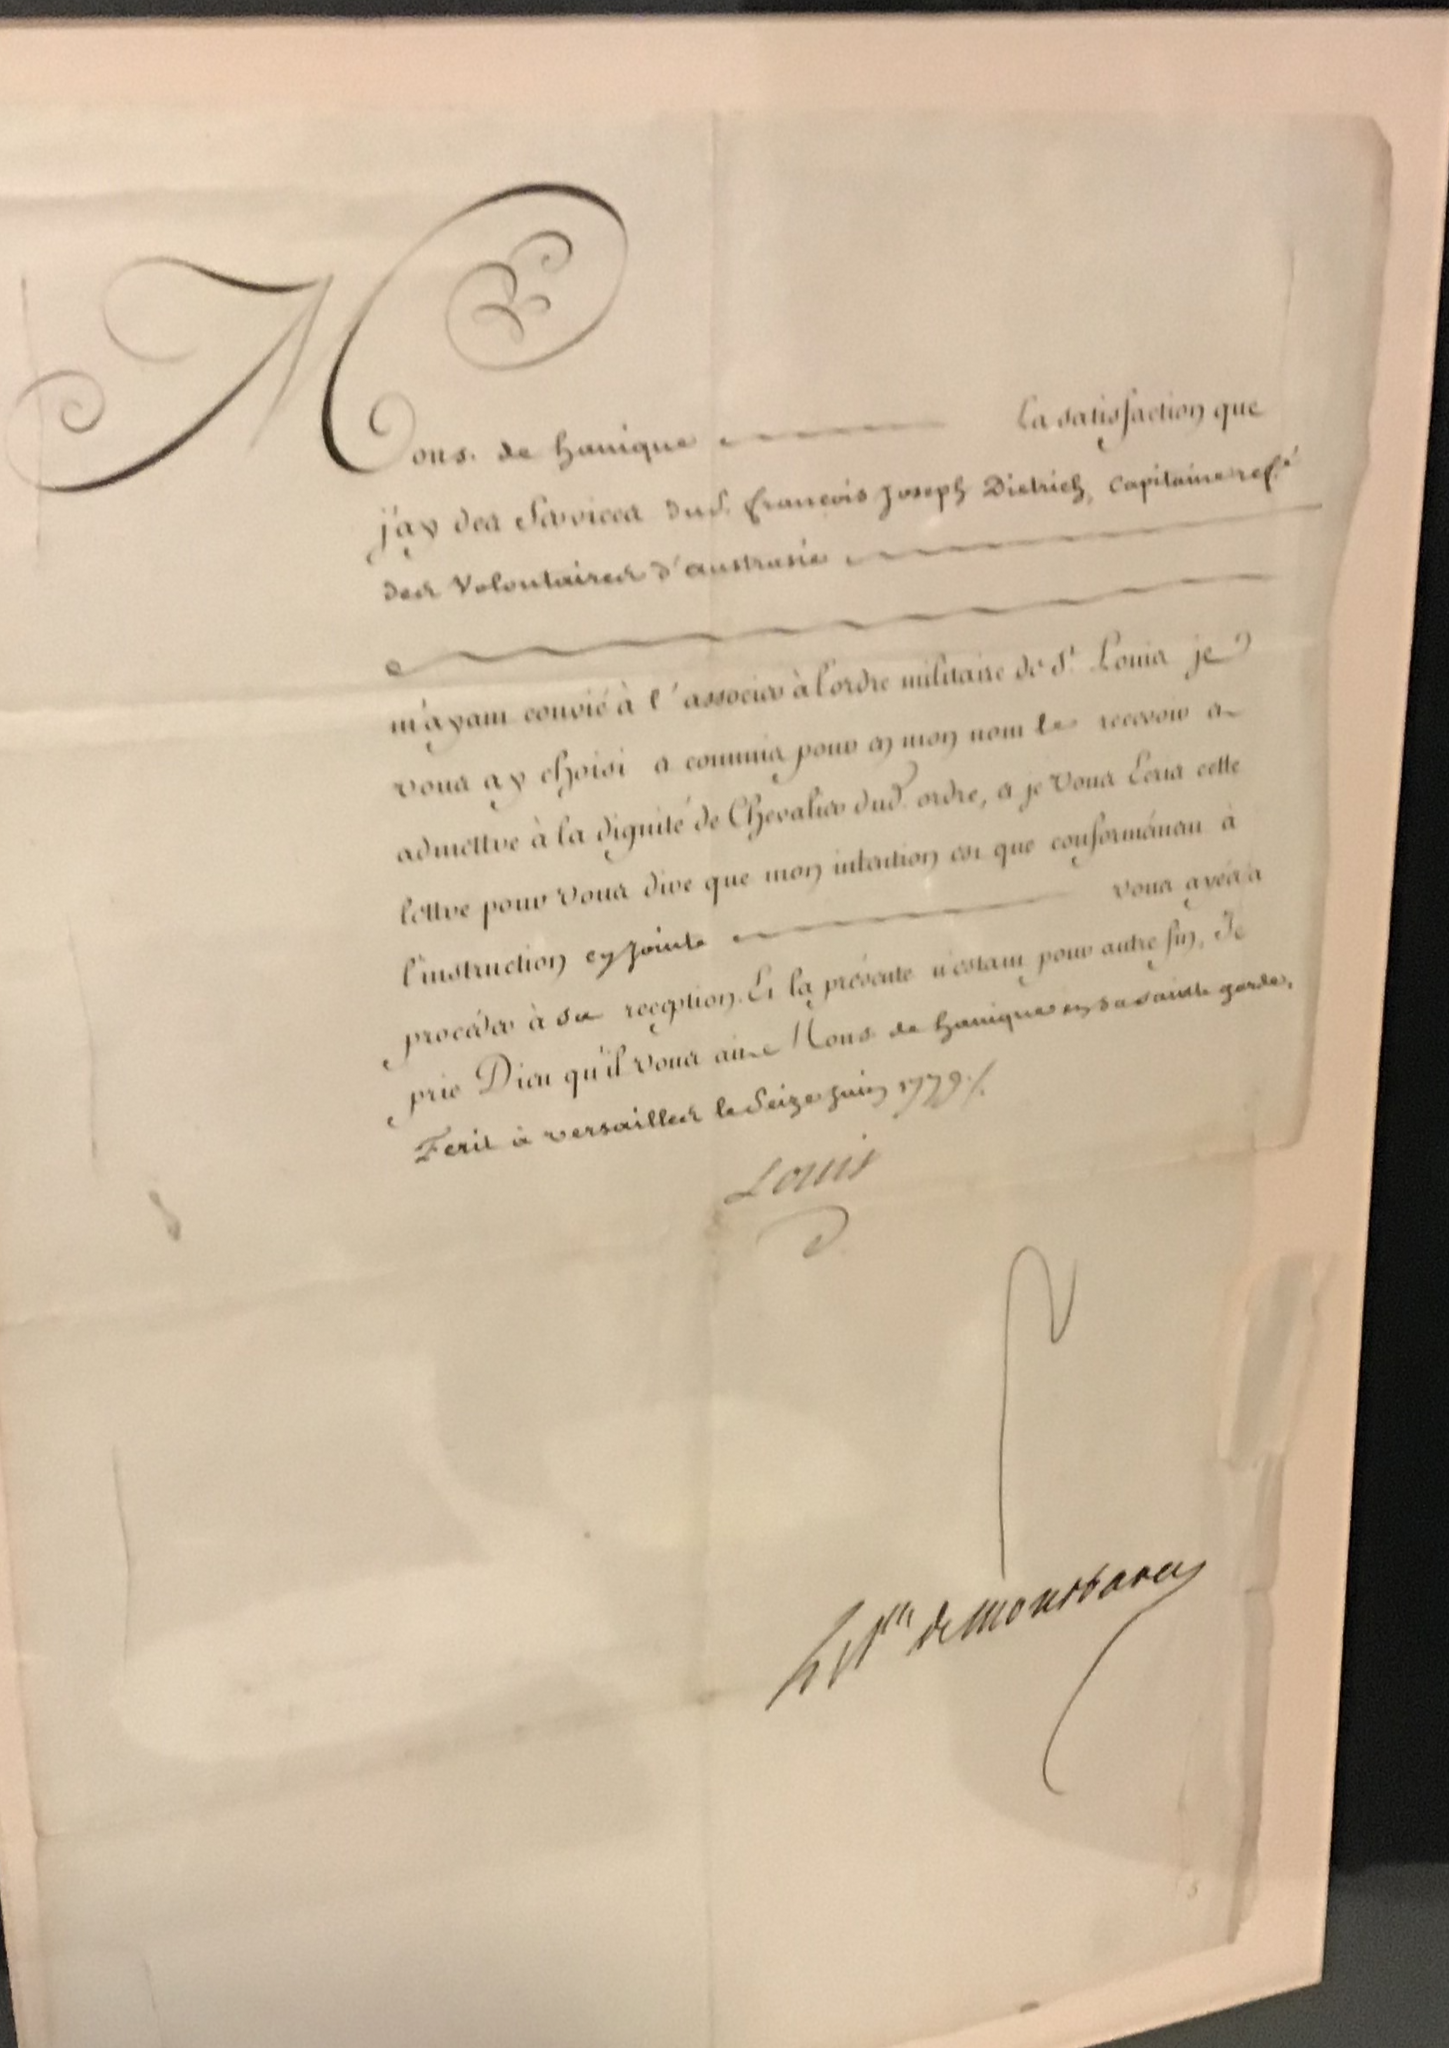 Mons. de hanique La satisfaction que
j'ay des Services dud. S. françois joseph Dietrich, Capitaine ref.é
des Volontaires d'austrasie
m'ayant convié à l'associer à l'ordre militaire de St. Louis je
vous ay choisi et commis pour en mon nom le recevoir et
admettre à la dignité de Chevalier dud. ordre, et je vous Ecris cette
lettre pour vous dire que mon intention est que conformément à
l'instruction cy jointe vous ayés à
procéder à sa reception. Et la présente n'estant pour autre fin, Je
prie Dieu qu'il vous ait Mons. de hanique en sa sainte garde.
Ecrit à versailles le Seize juin 1779./.
Louis
Le Pce de montbarey